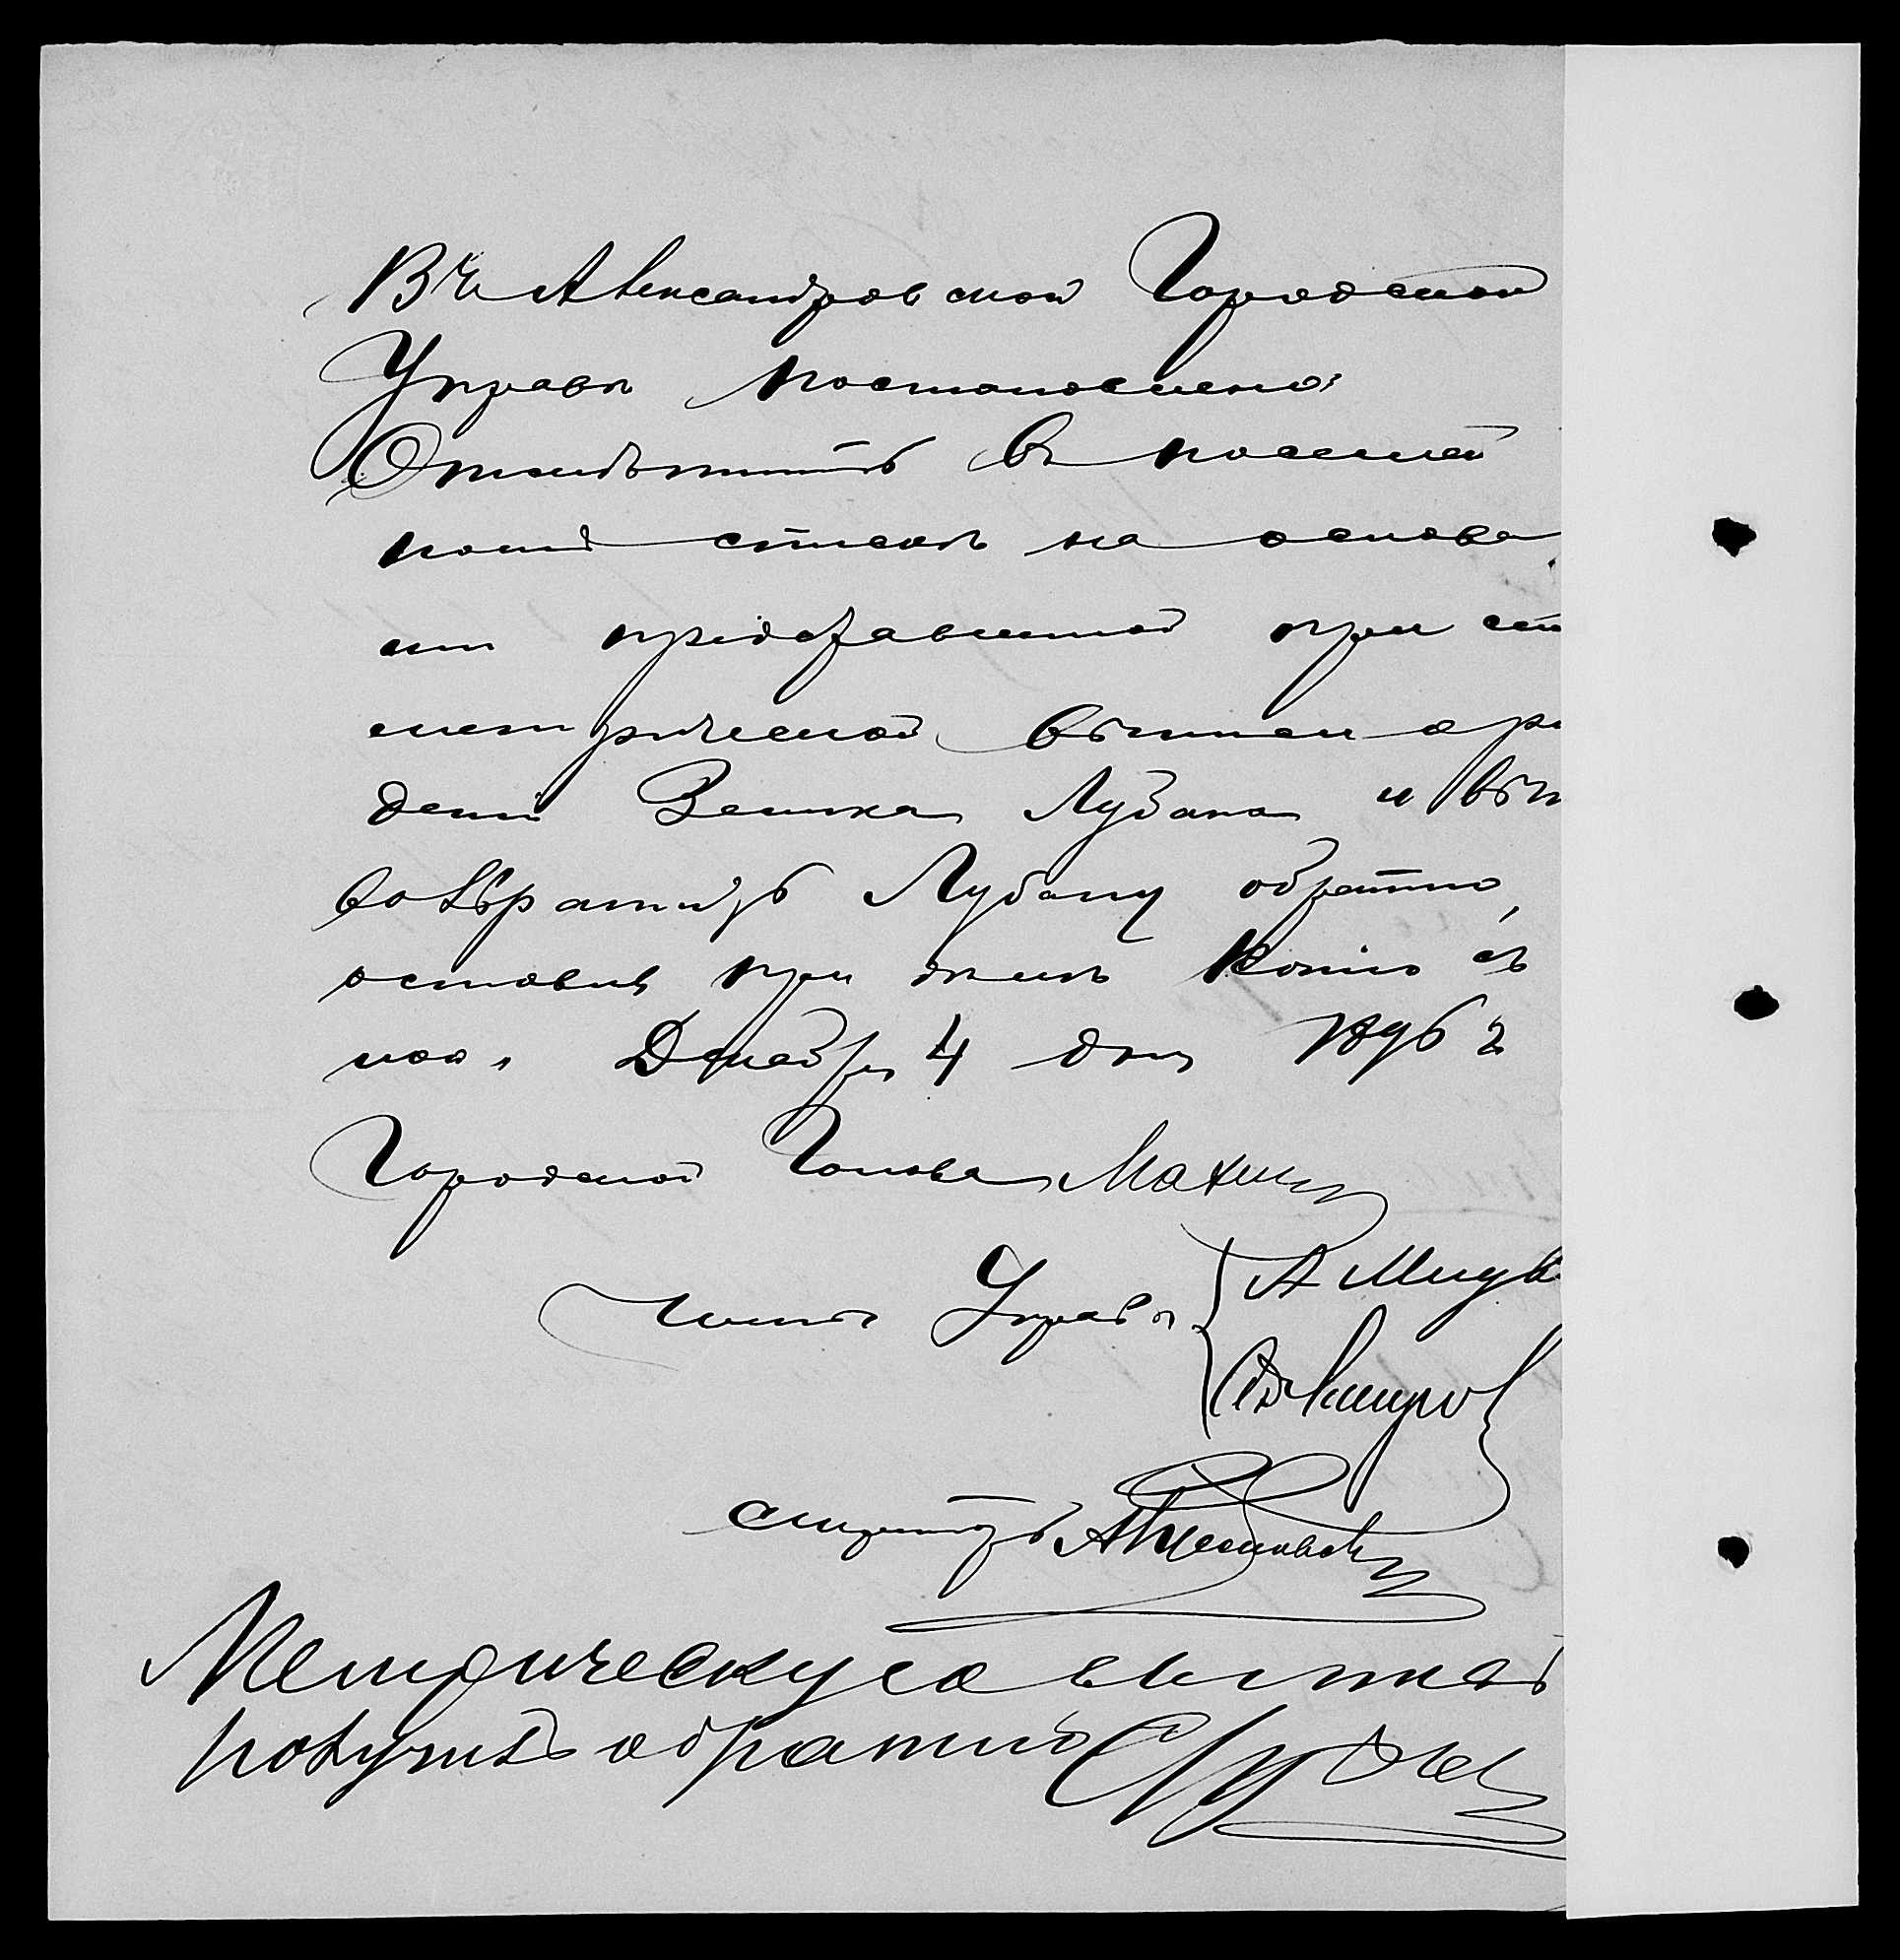 Въ Александровской Городской
Управѣ постановлено:
Отмѣтить въ посемей
номъ спискѣ на основа
ніи представленной при
метрической выписи о ро
деніи Зелика Лубана и вы
возвратить Лубану обратно,
оставивъ при дѣлѣ копію съ
ной. Декабря 4 дня 1896 г
Городской Голова Махин
Члены Управы А
Секретарь А
Метрическую выпись
получилъ обратно С Лубан